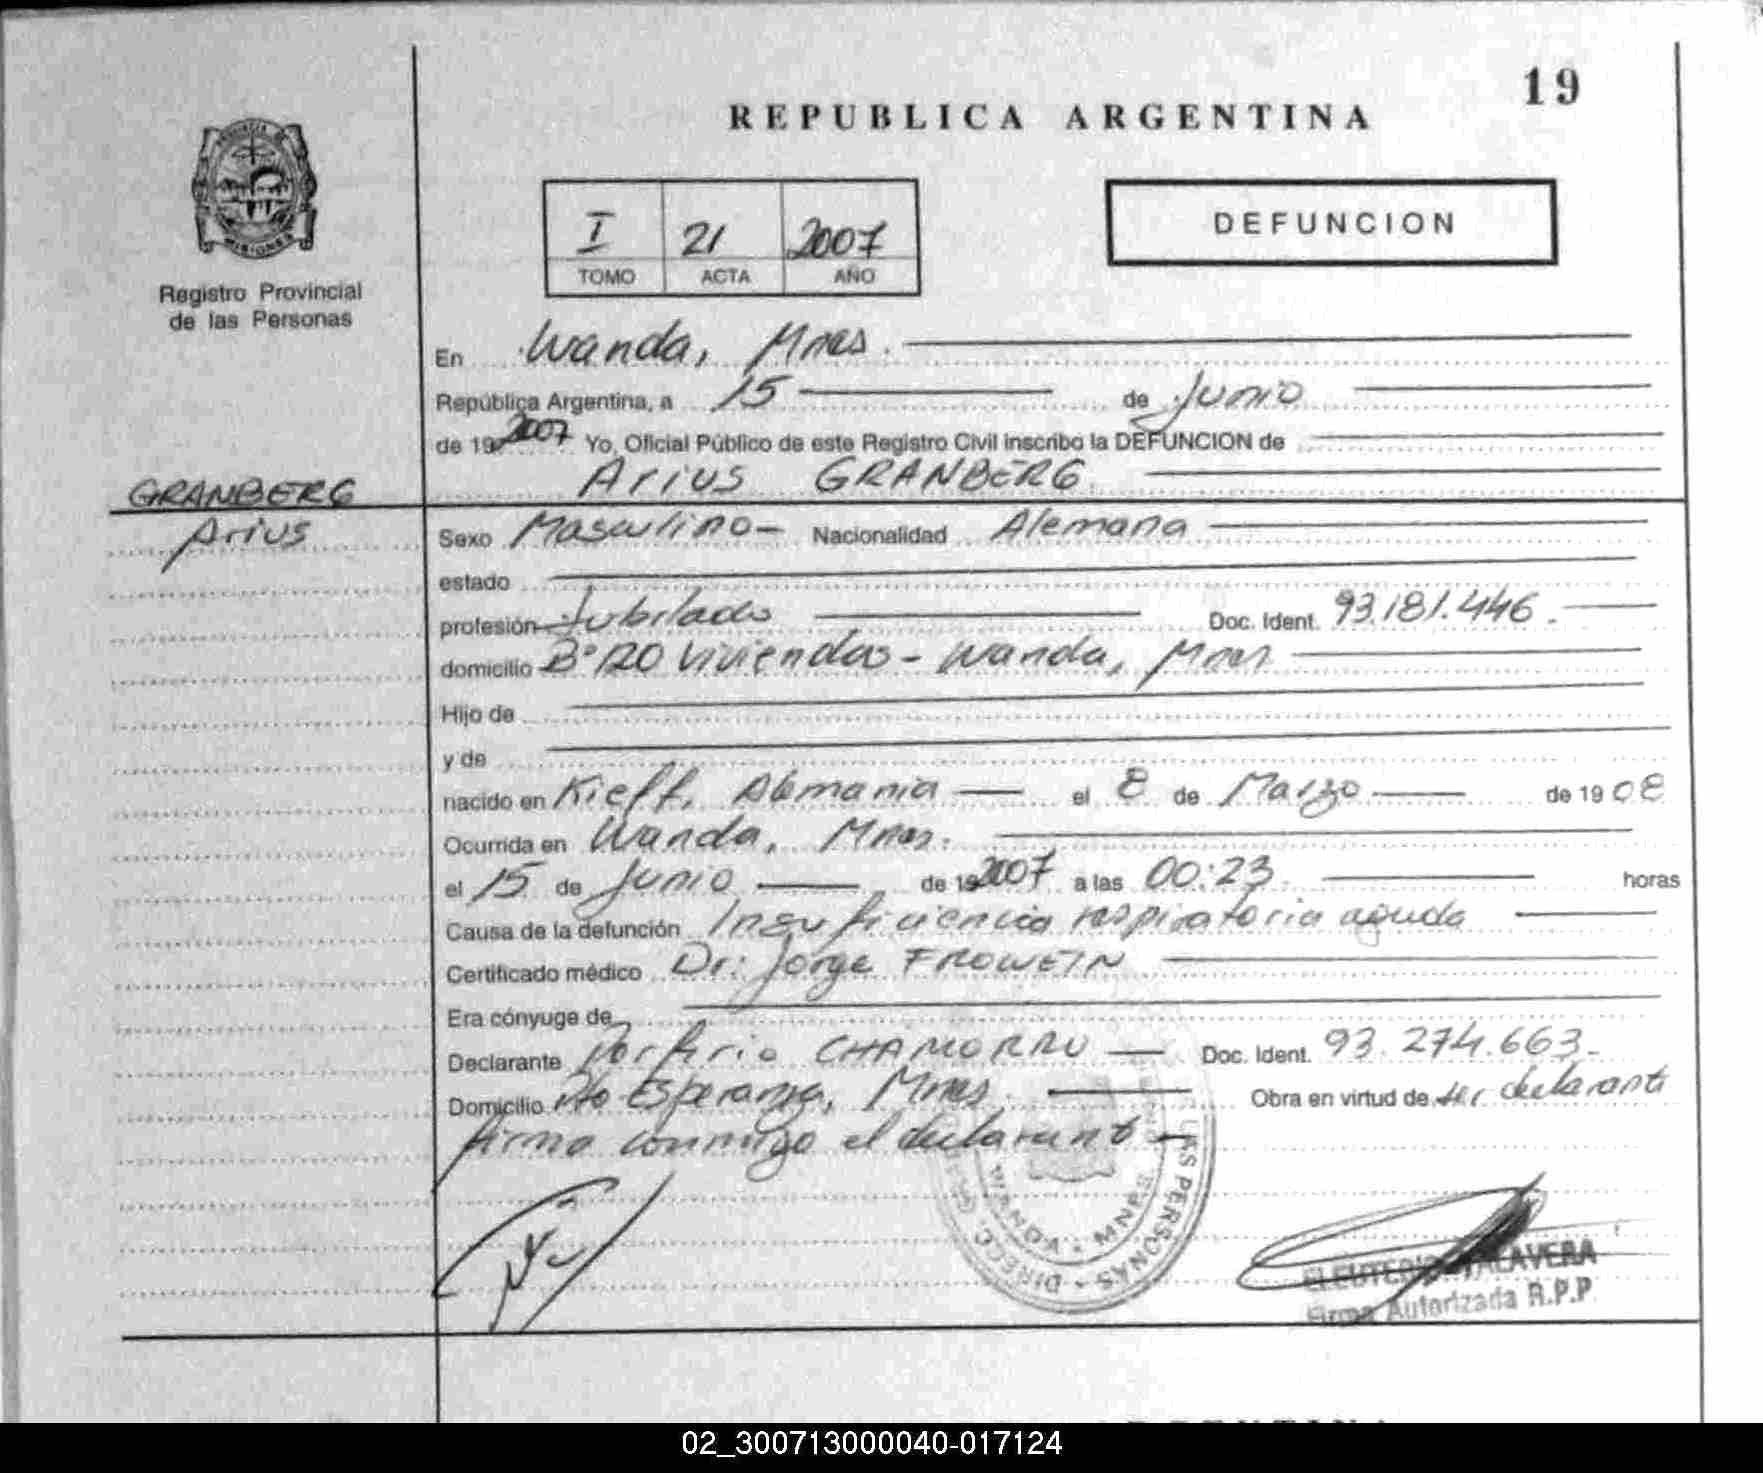 19
REPUBLICA ARGENTINA
I 21 2007
TOMO ACTA AÑO
DEFUNCION
MISIONES
Registro Provincial
de las Personas
En Wanda, Mnes.
República Argentina, a 15 de Junio
de 19 2007 Yo, Oficial Público de este Registro Civil inscribo la DEFUNCION de
Arius GRANBERG
GRANBERG
Arius
Sexo Masculino Nacionalidad Alemana
estado
profesión Jubilado Doc. Ident. 93.181.446.
domicilio B° 120 Viviendas - Wanda, Mnes
Hijo de
y de
nacido en Kieff, Alemania el 8 de Marzo de 19 08
Ocurrida en Wanda, Mnes.
el 15 de Junio de 19 2007 a las 00:23 horas
Causa de la defunción Insuficiencia respiratoria aguda
Certificado médico Dr: Jorge FROWEIN
Era cónyuge de
Declarante Porfirio CHAMORRO Doc. Ident. 93.274.663.-
Domicilio Pto Esperanza, Mnes. Obra en virtud de ser declarante
firma conmigo el declarante
LAS PERSONAS • DIRECC.
WANDA • MNES
ELEUTERIO TALAVERA
Firma Autorizada R.P.P.
02_300713000040-017124